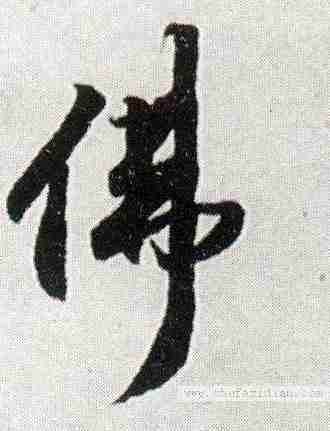 佛
www.shufazidian.com